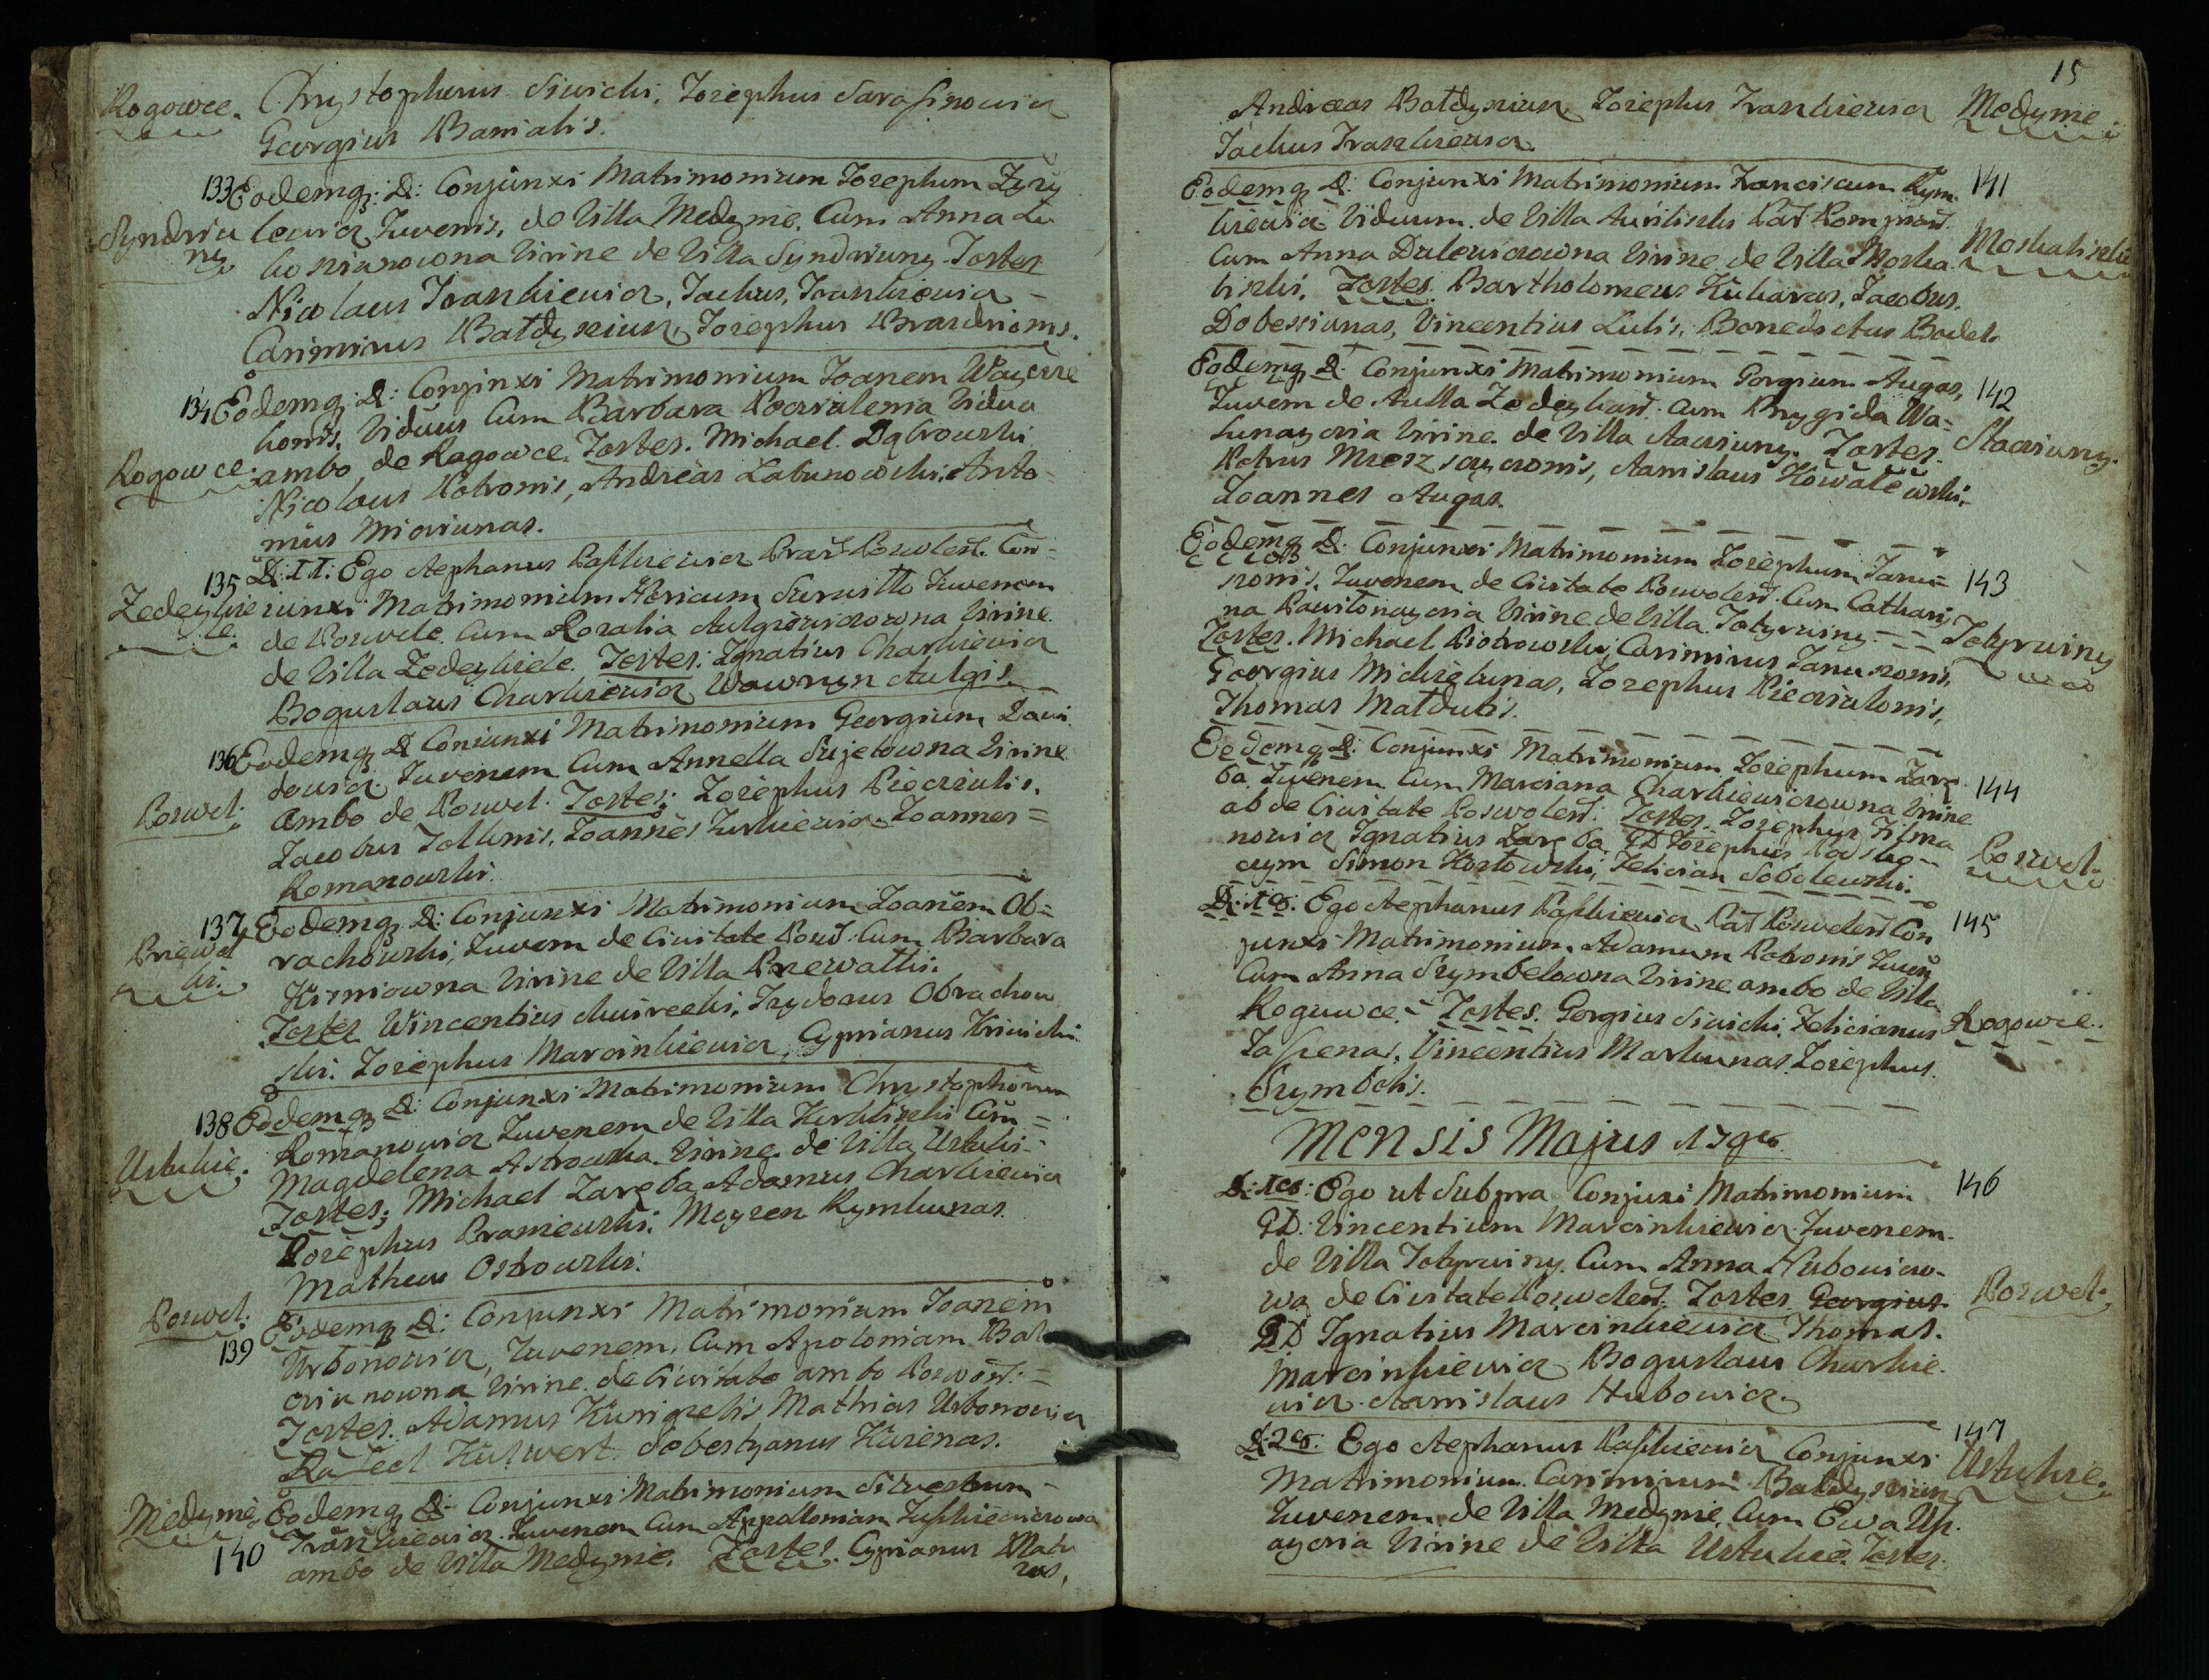 Rogowce. Chrystophorus Siwicki, Jozephus Sarafinowicz
Georgius Banialis.
133 Eodemq; D: Conjunxi Matrimonium Jozephum Zyry
Syndriu lewicz Juvenis, de Villa Medynie, Cum Anna Lu
ny konianowna Virine de Villa Syndriuny Testes
Nicolaus Jvankiewicz, Jachus, Jvankiewicz =
Casimirus Bałdyniun, Jozephus Brazdzionis.
134 Eodemq; D: Conjinxi Matrimonium Joanem Waycie
konis, Viduus Cum Barbara Pociulenia Vidua
Rogowce. ambo de Rogowce, Testes. Michael Dąbrowski
Nicolaus Petronis, Andreas Łabunowski, Anto=
nius Miciunas.
135 D: 11. Ego Stephanus Paszkiewicz Præs Poswolens. Con=
Zedeykie iunxi Matrimonium Hericum Surwiłło Juvenem
le. de Poswole Cum Rozalia Stulgiewiczowna Virine
de Villa Zedeykiele. Testes: Ignatius Charkiewicz
Bogusłaus Charkiewicz Wawrzyn Stulgis.
136 Eodemq; D Coniunxi Matrimonium Georgium Dawi
dowicz Juvenem Cum Annella Sujetowna Virine
Poswol: Ambo de Poswol. Testes; Jozephus Pieciulis,
Jacobus Tollonis, Joannes Jurkiewicz Joannes =
Romanowski.
137 Eodemq; D: Conjunxi Matrimonium Joanem Ob=
Priewał rachowski, Juvem de Civitate Posw: Cum Barbara
ki. Kismiowna Virine de Villa Przewałki.
Testes Wincentius Muireelis, Izydorus Obrachow
ski. Jozephus Marcinkiewicz, Cyprianus Kriwicki
138 Eodemq; D: Conjunxi Matrimonium Chrystophorum
Romanowicz Juvenem de Villa Kirkliszki Cum =
Ustukie; Magdelena Astrowska Virine de Villa Ustuki=
Testes; Michael Zaręba Adamus Charkiewicz
Jozephus Braniewski. Moyzen Rymkunas.
Matheus Ostrowski.
Poswol: Eodemq; D: Conjunxi Matrimonium Joanem
139 Urbonowicz, Juvenem, Cum Apoloniam Bal
ciunowna Virine. de Civitate ambo Poswol:=
Testes. Adamus Kunigelis Mathias Urbonowicz
Rafeel Kulwert Sebestyanus Kurenas.
Medynie Eodemq; D Conjunxi Matrimonium Silvestrum=
140 Ivankiewicz Juvenem Cum Appolloniam Juszkiewiczowa
ambo de Villa Medynie. Testes. Cyprianus Matu
zas,
15
Andreas Bałdyniun Jozephus Ivankiewicz Medynie.
Jachus Ivankiewicz.
Eodemq; D: Conjunxi Matrimonium Franciscum Rym= 141
kiewicz Viduum de Villa Auriliszki Par Rompians.
Cum Anna Dulewiczowna Virine de Villa Moska Moskaliszki
liszki, Testes. Bartholomeus Kukaras, Jacobus.
Dobessiunas, Vincentius Lulis, Benedictus Bodel.
Eodemq; D: Conjunxi Matrimonium Gorgium Augas, 142
Juvem de Aulla Zedeykans. Cum Brygida Wa=
lunayciu Virine de Villa Staciuny. Testes. Staciuny.
Petrus Mierzwyczonis, Stanislaus Kowalewski,
Joannes Augas.
Eodemq; D: Conjunxi Matrimonium Jozephum Janu= 143
szonis, Juvenem de Civitate Poswolens. Cum Cathari
na Pawiłonaycia Virine de Villa Totyrwiny. = = Totyrwiny
Testes. Michael Piotrowski, Casimirus Januszonis,
Georgius Michielunas, Jozephus Pieciulonis,
Thomas Matdutis.
Eodemq; D: Conjunxi Matrimonium Jozephum Zarę 144
ba Juvenem Cum Marciana Charkiewiczowna Virine
ab de Civitate Poswolens: Testes. Jozephus Filma
nowicz Ignatius Zaręba, GD Jozephus Podlug= Poswol.
cym Simon Kozłowski, Felician Sobolewski.
D: 18: Ego Stephanus Paszkiewicz Par Poswolens Con 145
junxi Matrimonium Adamum Petronis Juven
Cum Anna Szymbelowna Virine ambo de Villa
Roguwce.= Testes. Gorgius Siwicki, Felicianus Rogowce.
Jasienas, Vincentius Markunas Jozephus.
Szymbelis.
Mensis Majus 1798
D: 18: Ego ut Subpra Conjuxi Matrimonium 146
GD: Vincentium Marcinkiewicz Juvenem.
de Villa Totyrwiny Cum Anna Hubowiczo=
wa de Civitate Poswolens. Testes Georgius. Poswol.
GD Ignatius Marcinkiewicz Thomas.
Marcinkiewicz Bogusłaus Charkie.
wicz Stanislaus Hubowicz.
D: 28: Ego Stephanus Paszkiewicz Conjunxi 147
Matrimonium Casimirum Bałdyniun Ustukie.
Juvenem de Villa Medynie, Cum Ewa Usz.
aycia Virine de Villa Ustukie. Testes.